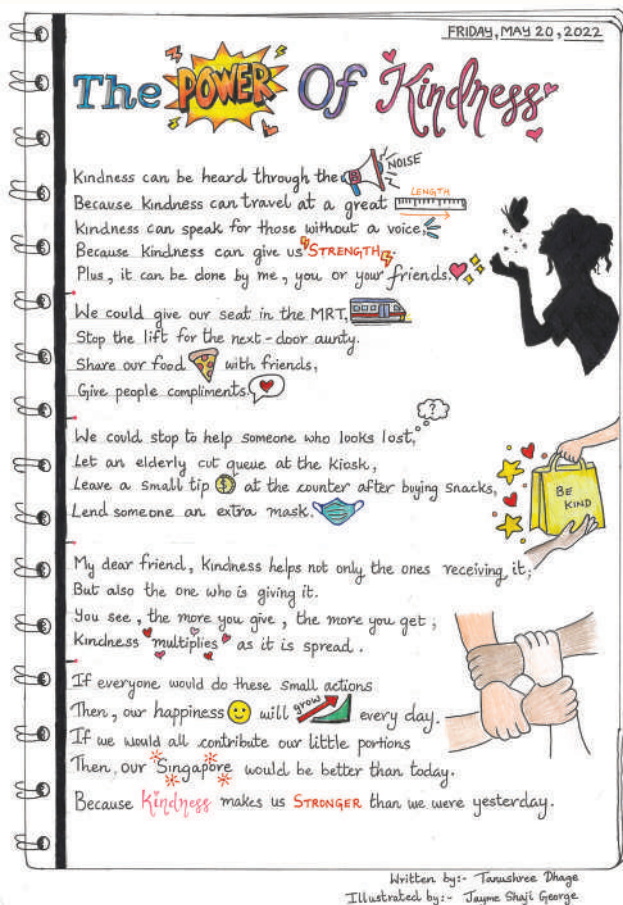 FRIDAY, MAY 20, 2022
The POWER Of Kindness
Kindness can be heard through the NOISE
Because kindness can travel at a great LENGTH
Kindness can speak for those without a voice,
Because kindness can give us STRENGTH.
Plus, it can be done by me, you or your friends.
We could give our seat in the MRT,
Stop the lift for the next-door aunty.
Share our food with friends,
Give people compliments.
?
We could stop to help someone who looks lost,
Let an elderly cut queue at the kiosk,
Leave a small tip $ at the counter after buying snacks,
Lend someone an extra mask.
BE
KIND
My dear friend, kindness helps not only the ones receiving it;
But also the one who is giving it.
You see, the more you give, the more you get;
Kindness multiplies as it is spread.
If everyone would do these small actions
Then, our happiness will grow every day.
If we would all contribute our little portions
Then, our Singapore would be better than today.
Because Kindness makes us STRONGER than we were yesterday.
Written by:- Tanushree Dhage
Illustrated by:- Jayme Shaji George